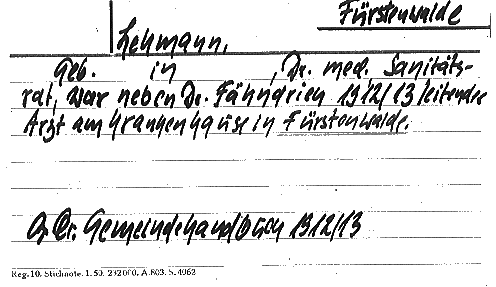 Fürstenwalde
Lehmann,
Geb. in , Dr. med. Sanitäts-
rat, war neben Dr. Fähndrich 1912/13 leitender
Arzt am Krankenhause in Fürstenwalde.
Br. Gemeindehandbuch 1912/13
Reg. 10. Stichnote. 1. 50. 232000. A. 803. S. 4062